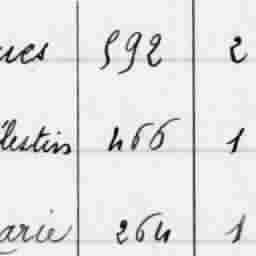 ues 592 2
élestin 466 1
arie 264 1